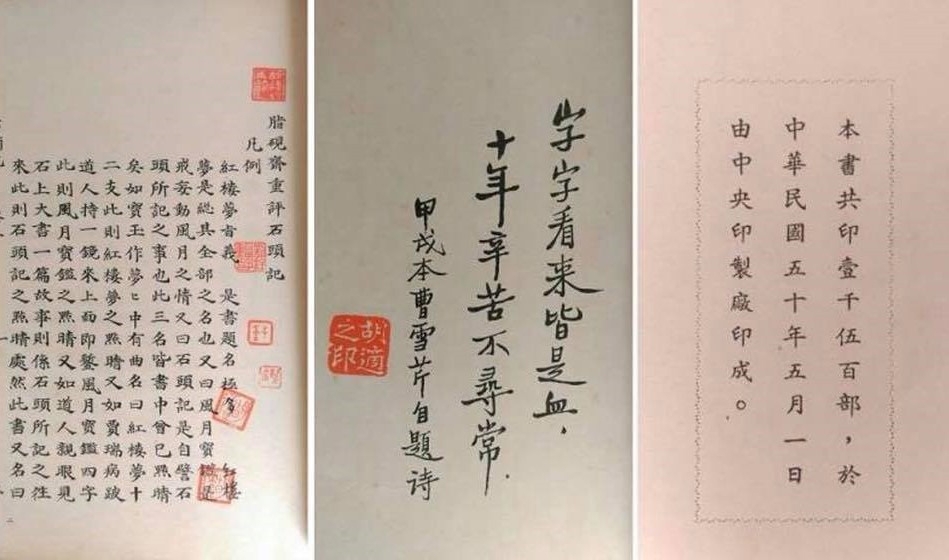 脂硯齋重評石頭記
凡例
紅樓夢旨義 是書題名極多 紅樓
夢是総其全部之名也又曰風月寶鑑是
戒妄動風月之情又曰石頭記是自譬石
頭所記之事也此三名皆書中曾已㸃睛
矣如寶玉作夢ヒ中有曲名曰紅樓夢十
二支此則紅樓夢之㸃睛又如賈瑞病跛
道人持一鏡來上面即鏨風月寶鑑四字
此則風月寶鑑之㸃睛又如道人親眼見
石上大書一篇故事則係石頭所記之徃
來此則石頭記之㸃睛處然此書又名曰
字字看来皆是血,
十年辛苦不尋常.
甲戌本曹雪芹自題诗
胡適之印
本書共印壹千伍百部，於
中華民國五十年五月一日
由中央印製廠印成。